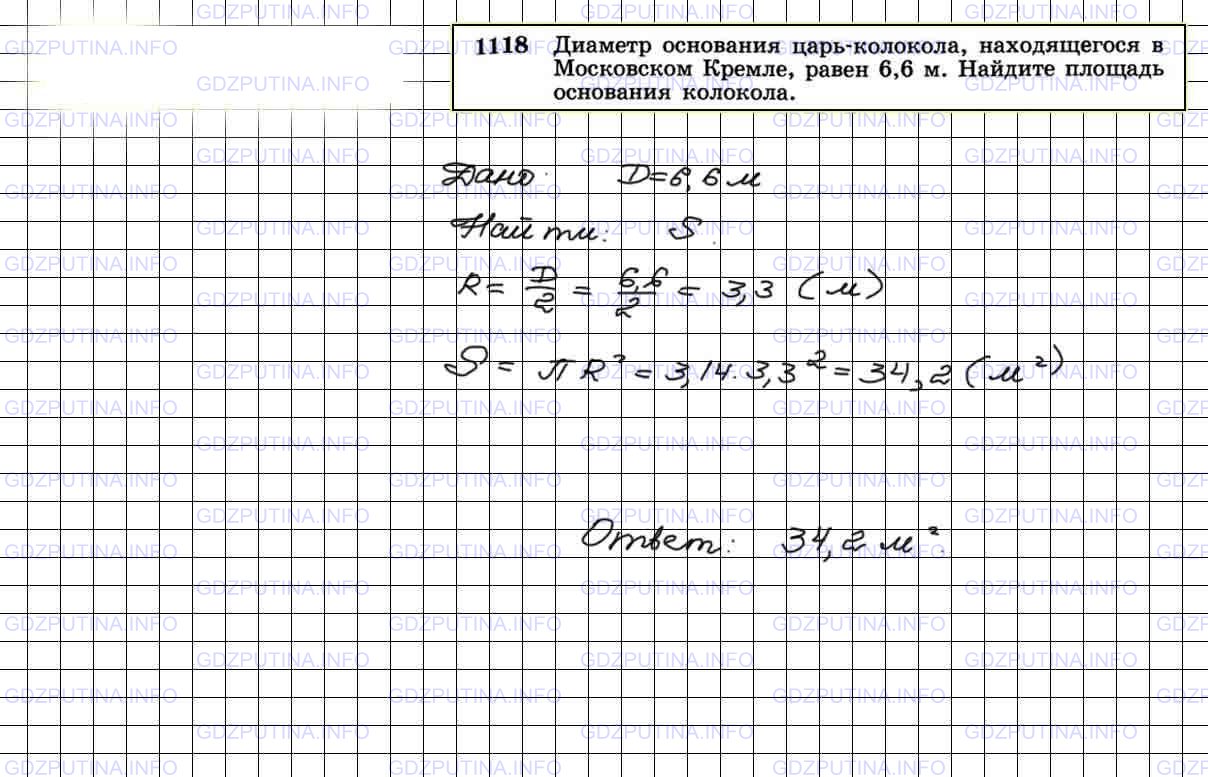 GDZPUTINA.INFO
1118 Диаметр основания царь-колокола, находящегося в
Московском Кремле, равен 6,6 м. Найдите площадь
основания колокола.
Дано: D=6,6 м
Найти: S.
R = D/2 = 6,6/2 = 3,3 (м)
S = πR² = 3,14·3,3² = 34,2 (м²)
Ответ: 34,2 м².